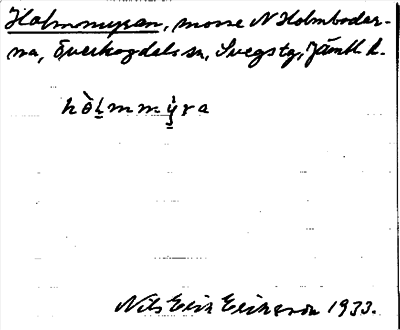 Holmmyran, mosse N Holmbodar-
na, Överhogdals sn, Svegs tg, Jämtl. l.
hòl̠mmẏ̠ra
Nils Erik Eriksson 1933.